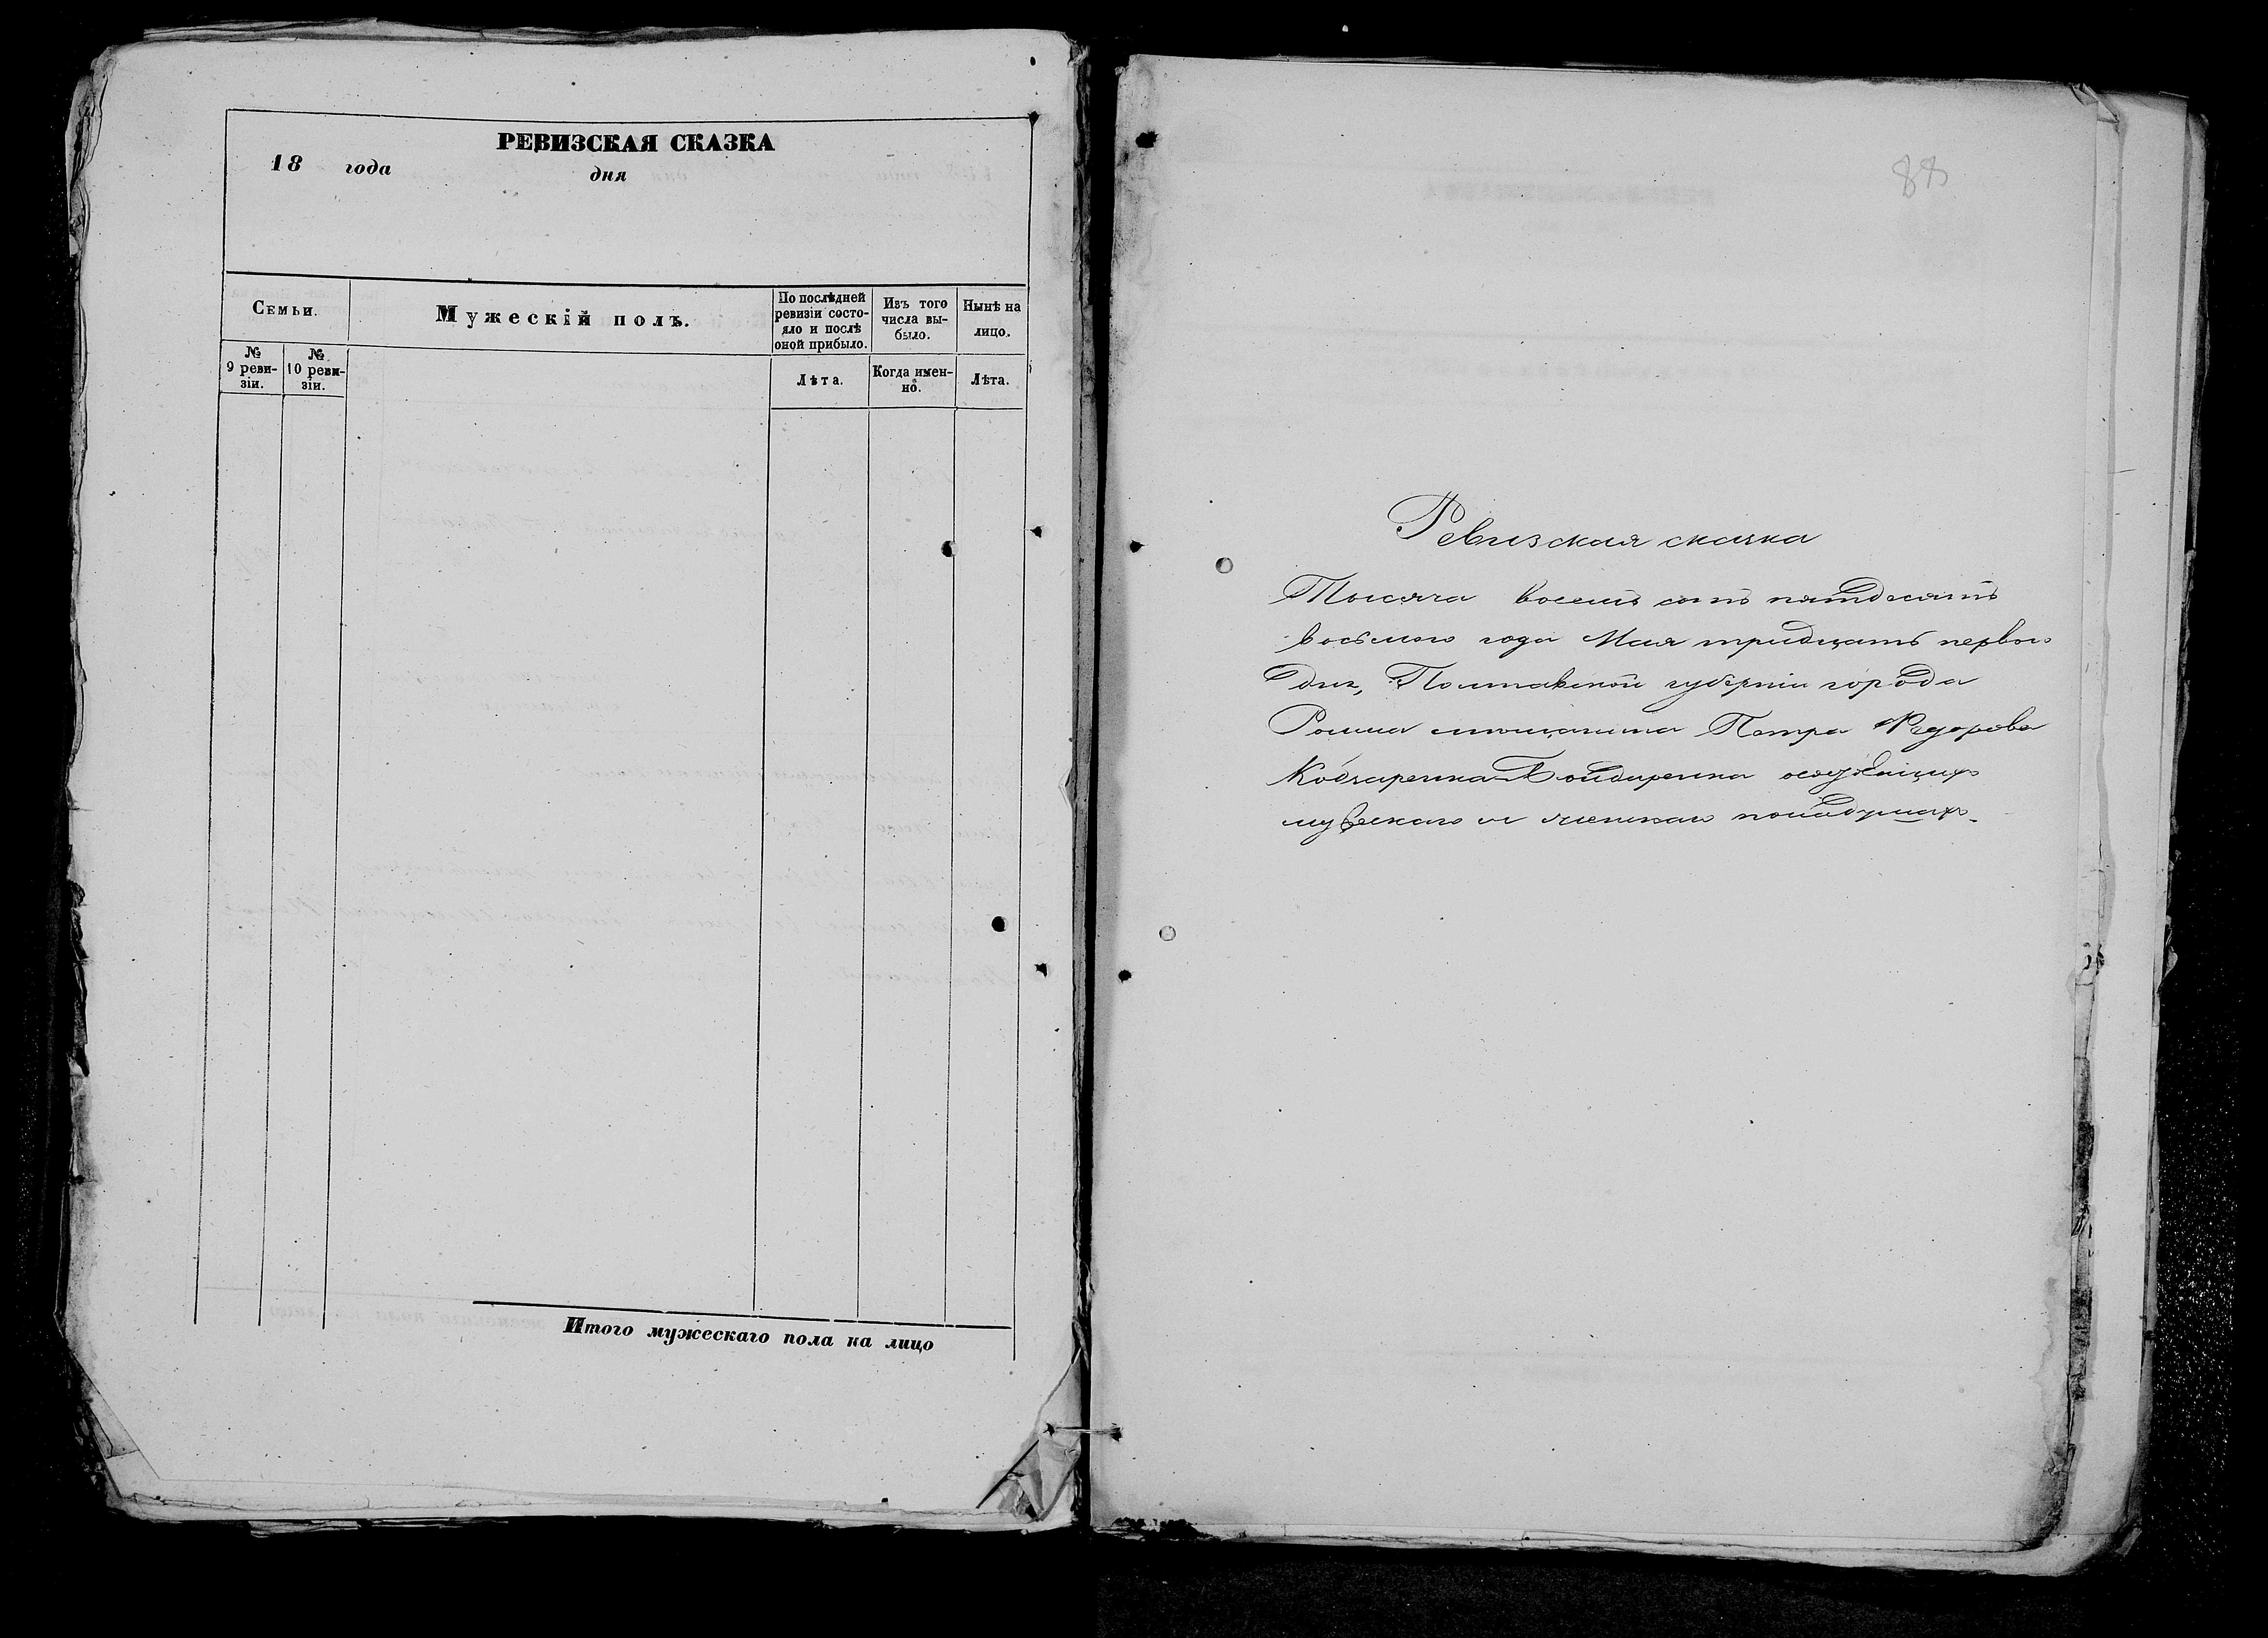 РЕВИЗСКАЯ СКАЗКА
18 года дня
Семьи.
Мужескій полъ.
По послѣдней ревизіи состо-
яло и послѣ
оной прибыло.
Изъ того
числа вы-
было.
Нынѣ на
лицо.
№
9 реви-
зіи.
№
10 реви-
зіи.
Лѣта.
Когда имен-
но.
Лѣта.
Итого мужескаго пола на лицо
88
Ревизская сказка
Тысяча восемь сотъ пятдесятъ
восьмого года Мая тридцать первого
дня, Полтавской губерніи города
Ромна мѣщанина Петра Федорова
мужескаго и женскаго пола душахъ.